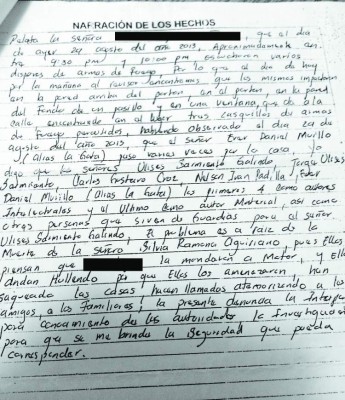 NARRACIÓN DE LOS HECHOS
Relata la señora que el dia
de ayer 24 agosto del año 2013, Aproximadamente en-
tre 9:30 pm y 10:00 pm escucharon varios
disparos de armas de fuego, Por lo que al dia de hoy
por la mañana al revisar encontramos que los mismos impactaron
en la pared arriba del porton en al porton, en la pared
del fondo de un pasillo y en una ventana que da a la
calle, encontrando en al lugar tres casquillos de armas
de fuego percutidos, habiendo observado el dia 20 de
agosto del año 2013, que el señor Ever Daniel Murillo
(Alias la Gata) paso varias veces por la casa, yo
digo que los señores Ulises Sarmiento Galindo, Jorge Ulises
Sarmiento, Carlos Gustavo Cruz, Nelson Ivan Padilla, Ever
Daniel Murillo (Alias la Gata) los primeros 4 como autores
Intelectuales y el Ultimo como autor Material, así como
otras personas que sirven de Guardias para al señor
Ulises Sarmiento Galindo, El problema es a raiz de la
Muerte de la señora Silvia Ramona Oquiriano, pues Ellos
piensan que la mandaron a Matar, y Ellos
Andan Hullendo por que Ellos los amenazaron han
saqueado las casas, hacen llamados atemorizando a los
amigos, a los Familiares, la presente denuncia la Interpongo
para conocimiento de las autoridades la Investiguen
para que se me brinde la Seguridad que pueda
corresponder.